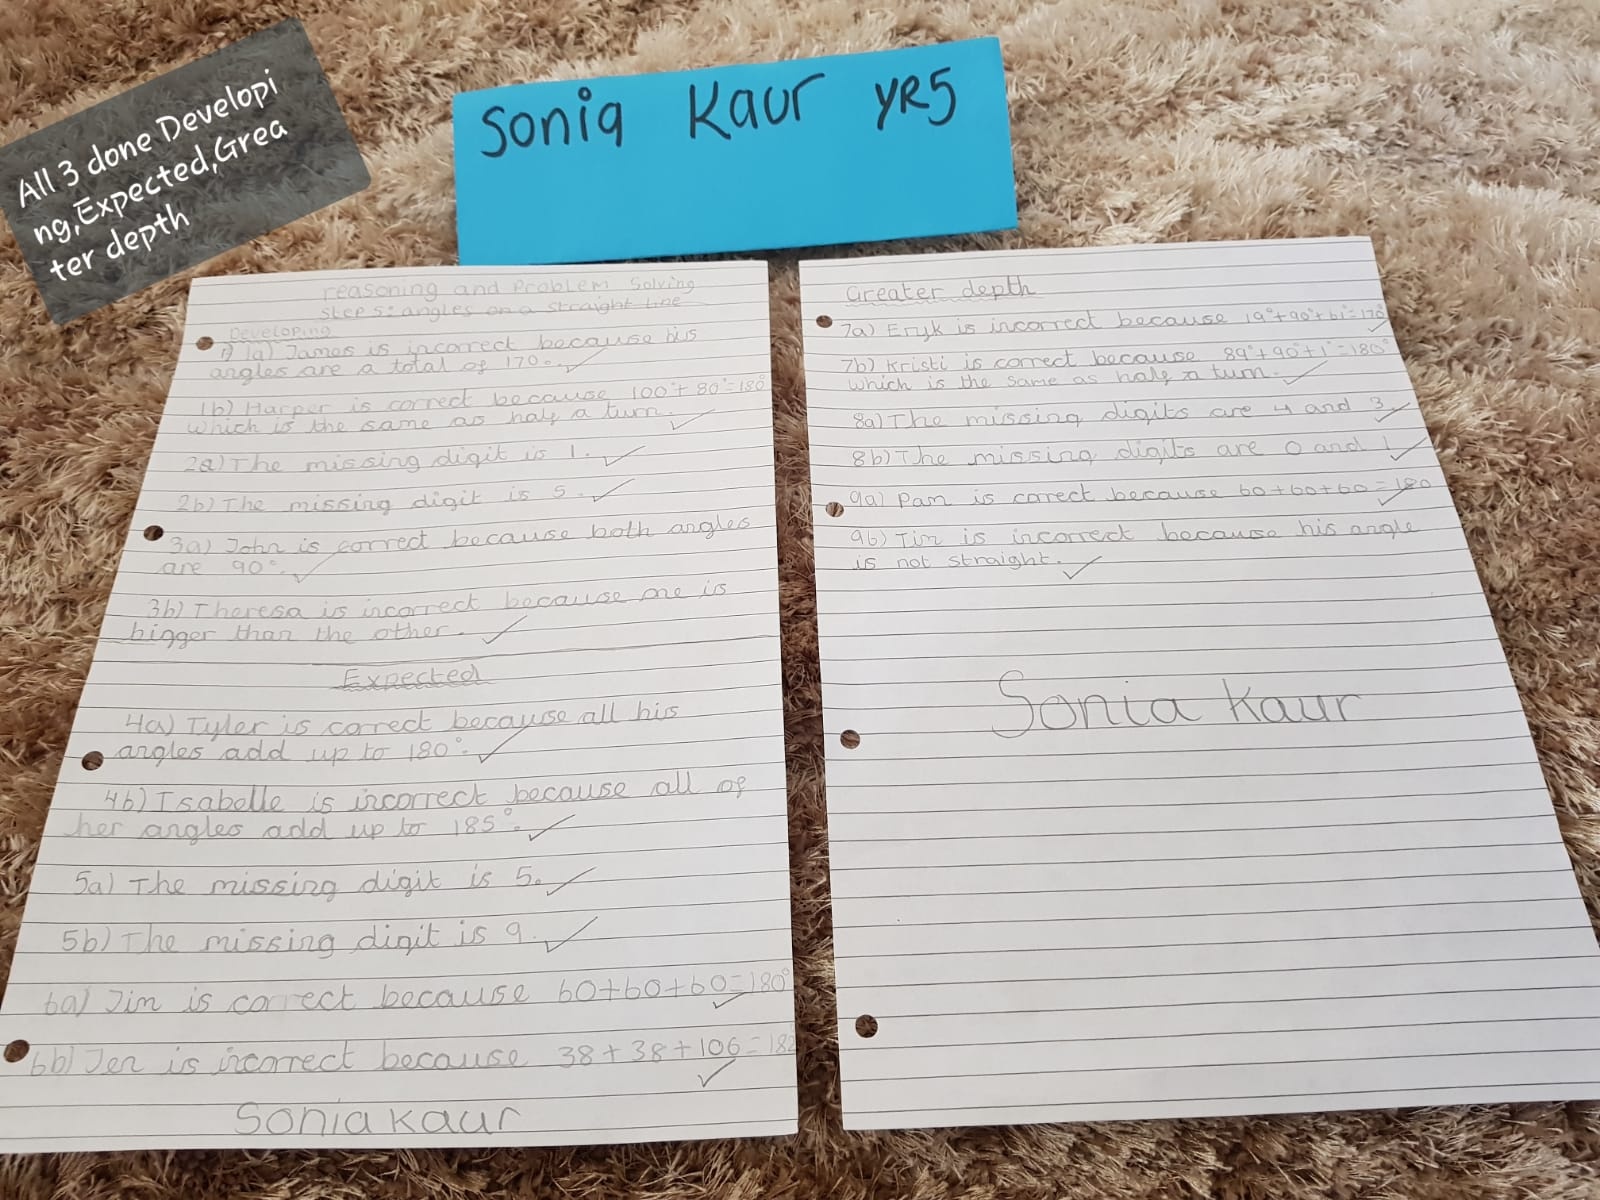 All 3 done Developi
ng,Expected,Grea
ter depth
Sonia Kaur YR5
reasoning and Problem Solving
step 5: angles on a straight line
Developing
1) 1a) James is incorrect because his
angles are a total of 170°. ✓
1b) Harper is correct because 100°+ 80°=180°
which is the same as half a turn. ✓
2a) The missing digit is 1. ✓
2b) The missing digit is 5. ✓
3a) John is correct because both angles
are 90°. ✓
3b) Theresa is incorrect because one is
bigger than the other. ✓
Expected
4a) Tyler is correct because all his
angles add up to 180°. ✓
4b) Isabelle is incorrect because all of
her angles add up to 185°. ✓
5a) The missing digit is 5. ✓
5b) The missing digit is 9. ✓
6a) Jim is correct because 60+60+60=180° ✓
6b) Jen is incorrect because 38+38+106=182 ✓
Sonia kaur
Greater depth
7a) Eryk is incorrect because 19°+90°+61°=170° ✓
7b) Kristi is correct because 89°+90°+1°=180°
which is the same as half a turn. ✓
8a) The missing digits are 4 and 3 ✓
8b) The missing digits are 0 and 1 ✓
9a) Pam is correct because 60+60+60=180 ✓
9b) Tim is incorrect because his angle
is not straight. ✓
Sonia Kaur